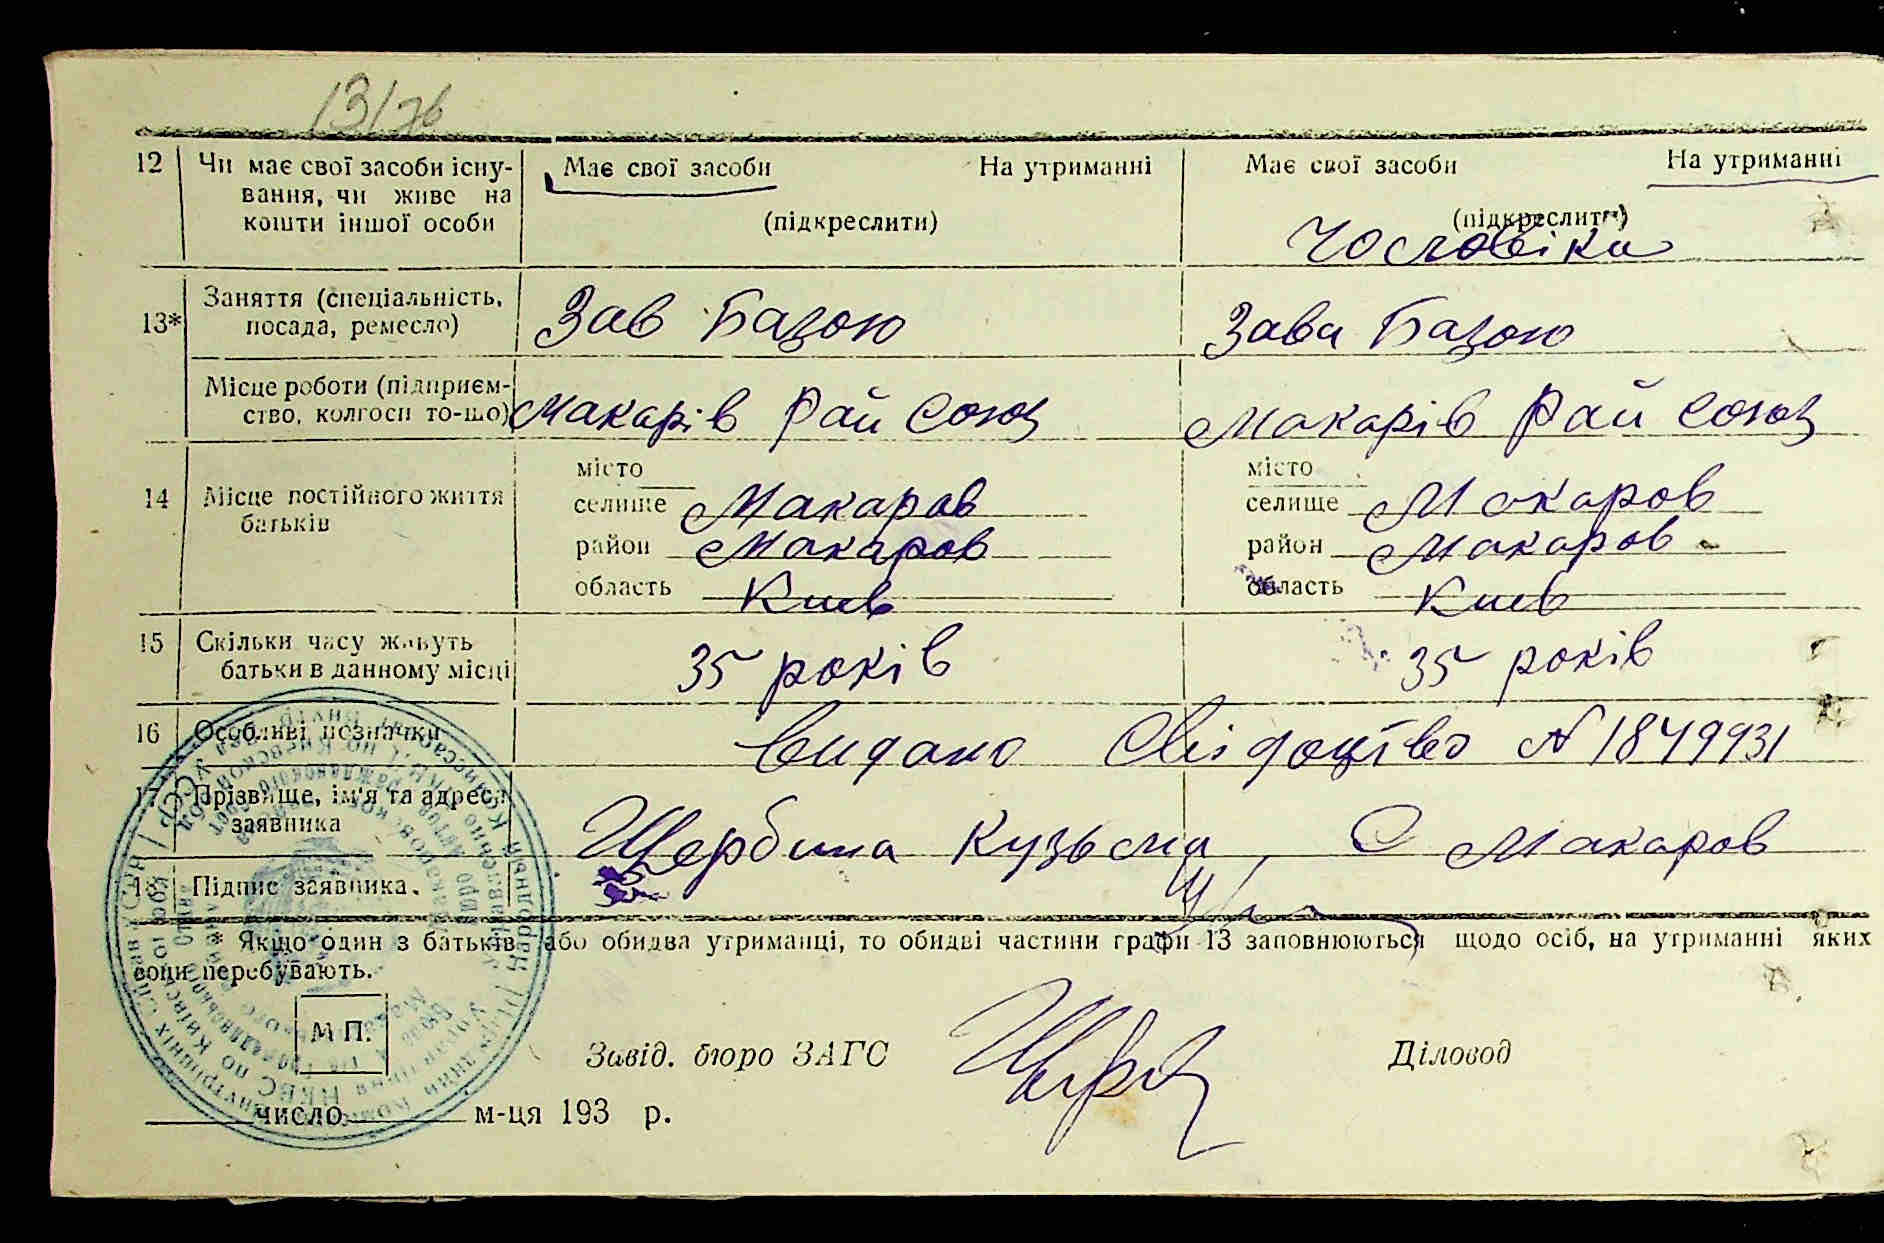 13/76
12 Чи має свої засоби існу- Має свої засоби На утриманні Має свої засоби На утриманні
вання, чи живе на
кошти іншої особи (підкреслити) (підкреслити)
Чоловіка
13* Заняття (спеціальність, посада, ремесло) Зав Базою Зава Базою
Місце роботи (підприєм-
ство, колгосп то-що) Макарів Рай Союз Макарів Рай Союз
місто місто
14 Місце постійного життя селище Макаров селище Макаров
батьків район Макаров район Макаров
область Киев область Киев
15 Скільки часу живуть
батьки в данному місці 35 років 35 років
16 Особливі позначки Видано Свідоцтво N 1849931
17 Прізвище, ім'я та адреса
заявника Щербина Кузьма, С Макаров
18 Підпис заявника.
* Якщо один з батьків або обидва утриманці, то обидві частини графи 13 заповнюються щодо осіб, на утриманні яких
вони перебувають.
М П.
Завід. бюро ЗАГС Діловод
число м-ця 193 р.